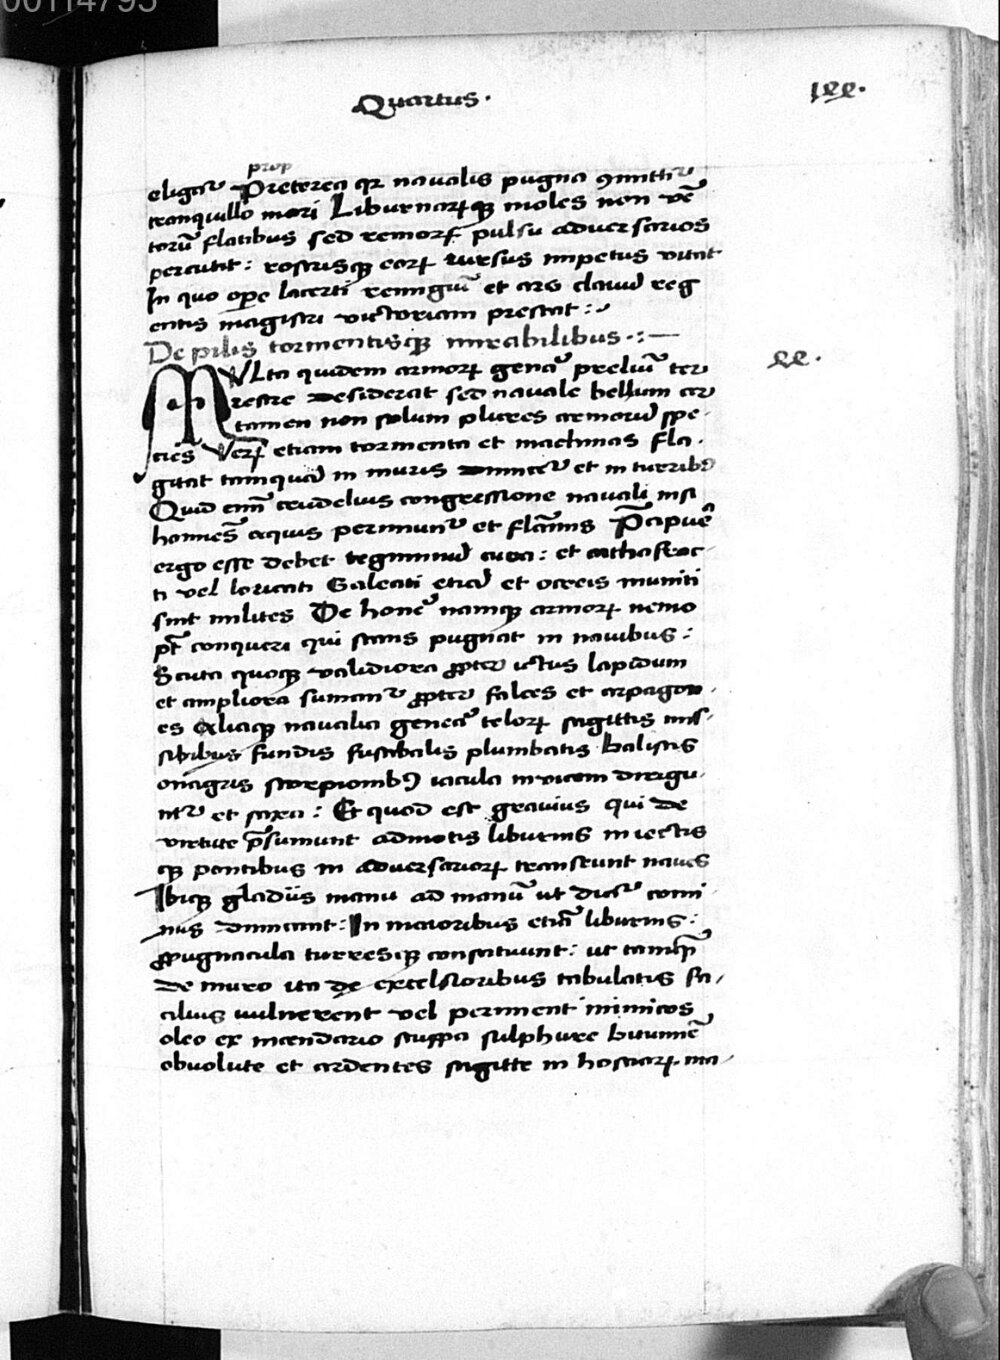 00114795
Quartus.
prop
eligat᷑ Preterea qꝛ naualis pugna ꝯmittit᷑
tranquillo mari Liburnarꝝqꝫ moles non vē
torū flatibus sed remorꝝ pulsu aduersarios
percutit: rostrisqꝫ eorꝝ rursus impetus vitat
In quo oꝑe lacerti remigiū et ars clauū reg
entis magistri victoriam prestat:
De pilis tormentisqꝫ mirabilibus.:
MVLta quidem armorꝝ genera preliū ter
restre desiderat sed nauale bellum cer
tamen non solum plures armorū spe
cies Verꝝ etiam tormenta et machinas fla
gitat tamquā in muris et in turribꝰ
Quid enī crudelius congressione nauali vbi
homīes aquis perimunt᷑ et flāmis P̄cipue
ergo esse debet tegminum cura: et cathafrac
ti vel loricati Galeati etiā et ocreis muniti
sint milites De honere namqꝫ armorꝝ nemo
pt̄ conqueri qui stans pugnat in nauibus:
Scuta quoqꝫ validiora ꝓpter ictus lapidum
et ampliora sumant᷑ ꝓpter falces et arpagon
es Aliaqꝫ naualia genera telorꝝ sagittis mis
sibibus fundis fustibalis plumbatis balistis
onagris scorpionibꝰ iacula inuicem dirigu
nt᷑ et saxa: Et quod est grauius qui de
virtute p̄sumunt admotis liburnis iniectis
qꝫ pontibus in aduersariorꝝ transeunt naues
Ibiqꝫ gladiis manu ad manū ut dicit᷑ comi
nus dimicant: In maioribus etiā liburnis:
ꝓpugnacula turresqꝫ constituunt: ut tamq̄
de muro ita de excelsioribus tabulatis fa
cilius uulnerent vel perimēt inimicos
oleo ex incendario stuppa sulphure bitumē
obuolute et ardentes sagitte in hostiarꝝ na